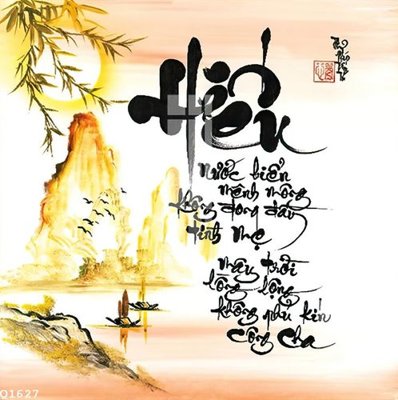 Hiếu
Nước biển
mênh mông
không đong đầy
tình mẹ
mây trời
lồng lộng
không phủ kín
công cha
Q1527